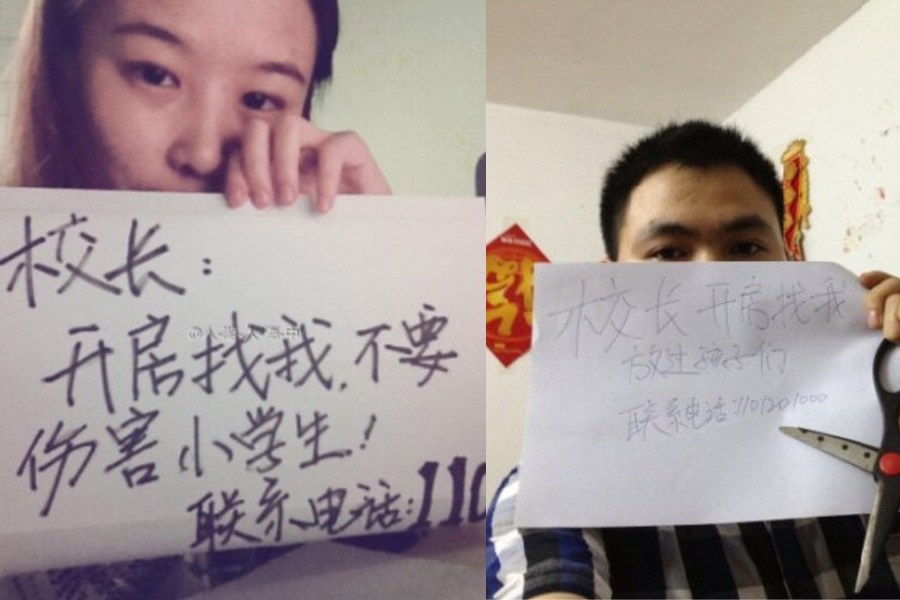 校长:
开房找我.不要
伤害小学生!
联系电话:110
校长 开房找我
放过孩子们
联系电话:1101201000